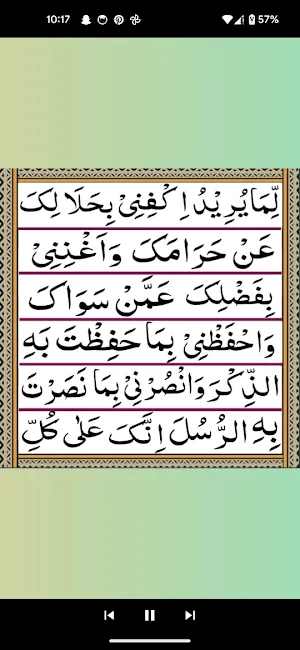 10:17
57%
لِّمَا يُرِيْدُ اِكْفِنِيْ بِحَلَالِكَ
عَنْ حَرَامَكَ وَاَغْنِنِيْ
بِفَضْلِكَ عَمَّنْ سَوَاكَ
وَاحْفَظْنِيْ بِمَا حَفِظْتَ بَهِ
الذِّكْرَ وَانْصُرْنِيْ بِمَا نَصَرْتَ
بِهِ الرُّسُلَ اِنَّكَ عَلٰى كُلِّ